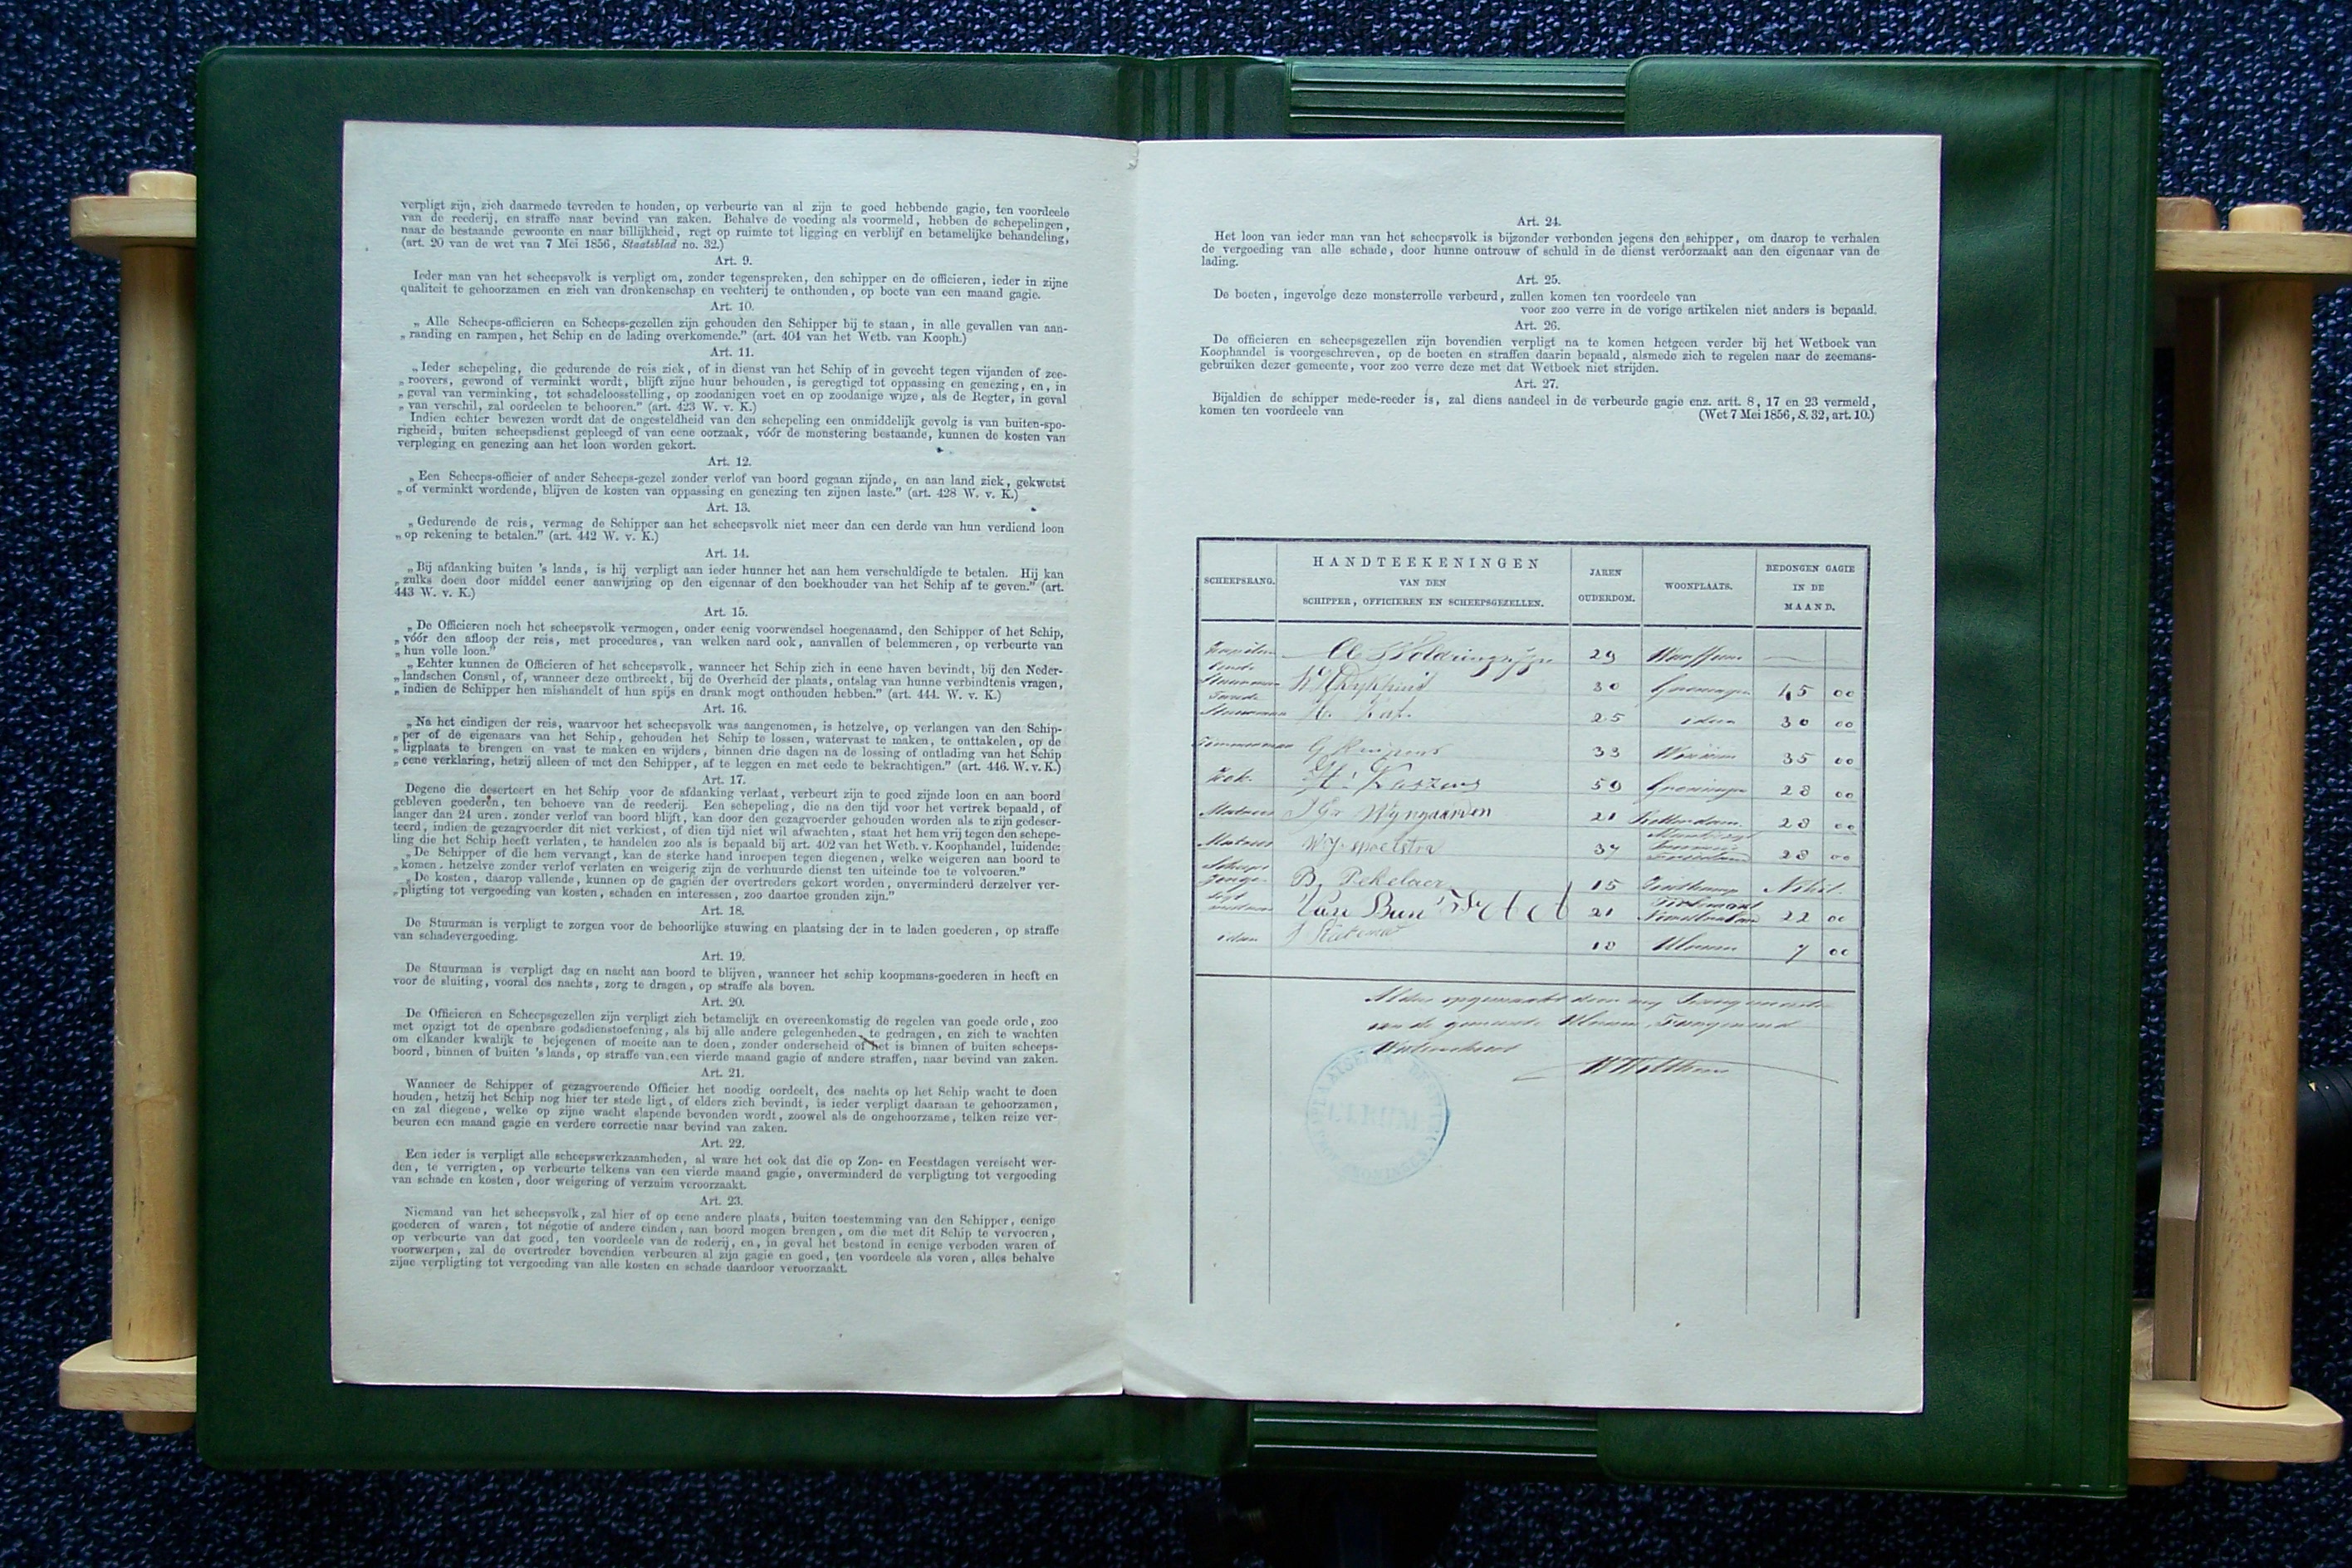 verpligt zijn, zich daarmede tevreden te houden, op verbeurte van al zijn te goed hebbende gagie, ten voordeele
van de reederij, en straffe naar bevind van zaken. Behalve de voeding als voormeld, hebben de schepelingen,
naar de bestaande gewoonte en naar billijkheid, regt op ruimte tot ligging en verblijf en betamelijke behandeling,
(art. 20 van de wet van 7 Mei 1856, Staatsblad no. 32.)
Art. 9.
Ieder man van het scheepsvolk is verpligt om, zonder tegenspreken, den schipper en de officieren, ieder in zijne
qualiteit te gehoorzamen en zich van dronkenschap en vechterij te onthouden, op boete van een maand gagie.
Art. 10.
„ Alle Scheeps-officieren en Scheeps-gezellen zijn gehouden den Schipper bij te staan, in alle gevallen van aan-
„ randing en rampen, het Schip en de lading overkomende.” (art. 404 van het Wetb. van Kooph.)
Art. 11.
„Ieder schepeling, die gedurende de reis ziek, of in dienst van het Schip of in gevecht tegen vijanden of zee-
„ roovers, gewond of verminkt wordt, blijft zijne huur behouden, is geregtigd tot oppassing en genezing, en, in
„ geval van verminking, tot schadeloosstelling, op zoodanigen voet en op zoodanige wijze, als de Regter, in geval
„ van verschil, zal oordeelen te behooren.” (art. 423 W. v. K.)
Indien echter bewezen wordt dat de ongesteldheid van den schepeling een onmiddelijk gevolg is van buiten-spo-
righeid, buiten scheepsdienst gepleegd of van eene oorzaak, vóór de monstering bestaande, kunnen de kosten van
verpleging en genezing aan het loon worden gekort.
Art. 12.
„Een Scheeps-officier of ander Scheeps-gezel zonder verlof van boord gegaan zijnde, en aan land ziek, gekwetst
„ of verminkt wordende, blijven de kosten van oppassing en genezing ten zijnen laste.” (art. 428 W. v. K.)
Art. 13.
„Gedurende de reis, vermag de Schipper aan het scheepsvolk niet meer dan een derde van hun verdiend loon
„ op rekening te betalen.” (art. 442 W. v. K.)
Art. 14.
„Bij afdanking buiten 's lands, is hij verpligt aan ieder hunner het aan hem verschuldigde te betalen. Hij kan
„ zulks doen door middel eener aanwijzing op den eigenaar of den boekhouder van het Schip af te geven.” (art.
443 W. v. K.)
Art. 15.
„De Officieren noch het scheepsvolk vermogen, onder eenig voorwendsel hoegenaamd, den Schipper of het Schip,
„ vóór den afloop der reis, met procedures, van welken aard ook, aanvallen of belemmeren, op verbeurte van
„ hun volle loon.”
„Echter kunnen de Officieren of het scheepsvolk, wanneer het Schip zich in eene haven bevindt, bij den Neder-
„ landschen Consul, of, wanneer deze ontbreekt, bij de Overheid der plaats, ontslag van hunne verbindtenis vragen,
„ indien de Schipper hen mishandelt of hun spijs en drank mogt onthouden hebben.” (art. 444. W. v. K.)
Art. 16.
„Na het eindigen der reis, waarvoor het scheepsvolk was aangenomen, is hetzelve, op verlangen van den Schip-
„ per of de eigenaars van het Schip, gehouden het Schip te lossen, watervast te maken, te onttakelen, op de
„ ligplaats te brengen en vast te maken en wijders, binnen drie dagen na de lossing of ontlading van het Schip
„ eene verklaring, hetzij alleen of met den Schipper, af te leggen en met eede te bekrachtigen.” (art. 446. W. v. K.)
Art. 17.
Degene die deserteert en het Schip voor de afdanking verlaat, verbeurt zijn te goed zijnde loon en aan boord
gebleven goederen, ten behoeve van de reederij. Een schepeling, die na den tijd voor het vertrek bepaald, of
langer dan 24 uren, zonder verlof van boord blijft, kan door den gezagvoerder gehouden worden als te zijn gedeser-
teerd, indien de gezagvoerder dit niet verkiest, of dien tijd niet wil afwachten, staat het hem vrij tegen den schepe-
ling die het Schip heeft verlaten, te handelen zoo als is bepaald bij art. 402 van het Wetb. v. Koophandel, luidende:
„De Schipper of die hem vervangt, kan de sterke hand inroepen tegen diegenen, welke weigeren aan boord te
„ komen, hetzelve zonder verlof verlaten en weigerig zijn de verhuurde dienst ten uiteinde toe te volvoeren.”
„De kosten, daarop vallende, kunnen op de gagiën der overtreders gekort worden, onverminderd derzelver ver-
„ pligting tot vergoeding van kosten, schaden en interessen, zoo daartoe gronden zijn.”
Art. 18.
De Stuurman is verpligt te zorgen voor de behoorlijke stuwing en plaatsing der in te laden goederen, op straffe
van schadevergoeding.
Art. 19.
De Stuurman is verpligt dag en nacht aan boord te blijven, wanneer het schip koopmans-goederen in heeft en
voor de sluiting, vooral des nachts, zorg te dragen, op straffe als boven.
Art. 20.
De Officieren en Scheepsgezellen zijn verpligt zich betamelijk en overeenkomstig de regelen van goede orde, zoo
met opzigt tot de openbare godsdienstoefening, als bij alle andere gelegenheden, te gedragen, en zich te wachten
om elkander kwalijk te bejegenen of moeite aan te doen, zonder onderscheid of het is binnen of buiten scheeps-
boord, binnen of buiten 's lands, op straffe van een vierde maand gagie of andere straffen, naar bevind van zaken.
Art. 21.
Wanneer de Schipper of gezagvoerende Officier het noodig oordeelt, des nachts op het Schip wacht te doen
houden, hetzij het Schip nog hier ter stede ligt, of elders zich bevindt, is ieder verpligt daaraan te gehoorzamen,
en zal diegene, welke op zijne wacht slapende bevonden wordt, zoowel als de ongehoorzame, telken reize ver-
beuren een maand gagie en verdere correctie naar bevind van zaken.
Art. 22.
Een ieder is verpligt alle scheepswerkzaamheden, al ware het ook dat die op Zon- en Feestdagen vereischt wer-
den, te verrigten, op verbeurte telkens van een vierde maand gagie, onverminderd de verpligting tot vergoeding
van schade en kosten, door weigering of verzuim veroorzaakt.
Art. 23.
Niemand van het scheepsvolk, zal hier of op eene andere plaats, buiten toestemming van den Schipper, eenige
goederen of waren, tot négotie of andere einden, aan boord mogen brengen, om die met dit Schip te vervoeren,
op verbeurte van dat goed, ten voordeele van de rederij, en, in geval het bestond in eenige verboden waren of
voorwerpen, zal de overtreder bovendien verbeuren al zijn gagie en goed, ten voordeele als voren, alles behalve
zijne verpligting tot vergoeding van alle kosten en schade daardoor veroorzaakt.
Art. 24.
Het loon van ieder man van het scheepsvolk is bijzonder verbonden jegens den schipper, om daarop te verhalen
de vergoeding van alle schade, door hunne ontrouw of schuld in de dienst veroorzaakt aan den eigenaar van de
lading.
Art. 25.
De boeten, ingevolge deze monsterrolle verbeurd, zullen komen ten voordeele van
voor zoo verre in de vorige artikelen niet anders is bepaald.
Art. 26.
De officieren en scheepsgezellen zijn bovendien verpligt na te komen hetgeen verder bij het Wetboek van
Koophandel is voorgeschreven, op de boeten en straffen daarin bepaald, alsmede zich te regelen naar de zeemans-
gebruiken dezer gemeente, voor zoo verre deze met dat Wetboek niet strijden.
Art. 27.
Bijaldien de schipper mede-reeder is, zal diens aandeel in de verbeurde gagie enz. artt. 8, 17 en 23 vermeld,
komen ten voordeele van (Wet 7 Mei 1856, S. 32, art. 10.)
SCHEEPSRANG. HANDTEEKENINGEN VAN DEN SCHIPPER, OFFICIEREN EN SCHEEPSGEZELLEN. JAREN OUDERDOM. WOONPLAATS. BEDONGEN GAGIE IN DE MAAND.
Kapitein 29 Warffum
Eerste Stuurman 30 Groningen 45 00
Tweede Stuurman H. Kat. 25 idem 30 00
Timmerman 33 35 00
Kok. 50 Groningen 28 00
Matroos Wijngaarden 21 Rotterdam 28 00
Matroos W J Spoelstra 37 28 00
Scheeps jongen B. Pekelaer 15 Nihil.
Ligt matroos Van Bun 21 Noordbraband 22 00
idem 18 Ulrum 7 00
Aldus opgemaakt door mij
van de gemeente Ulrum
Waterschout
ULRUM
GRONINGEN